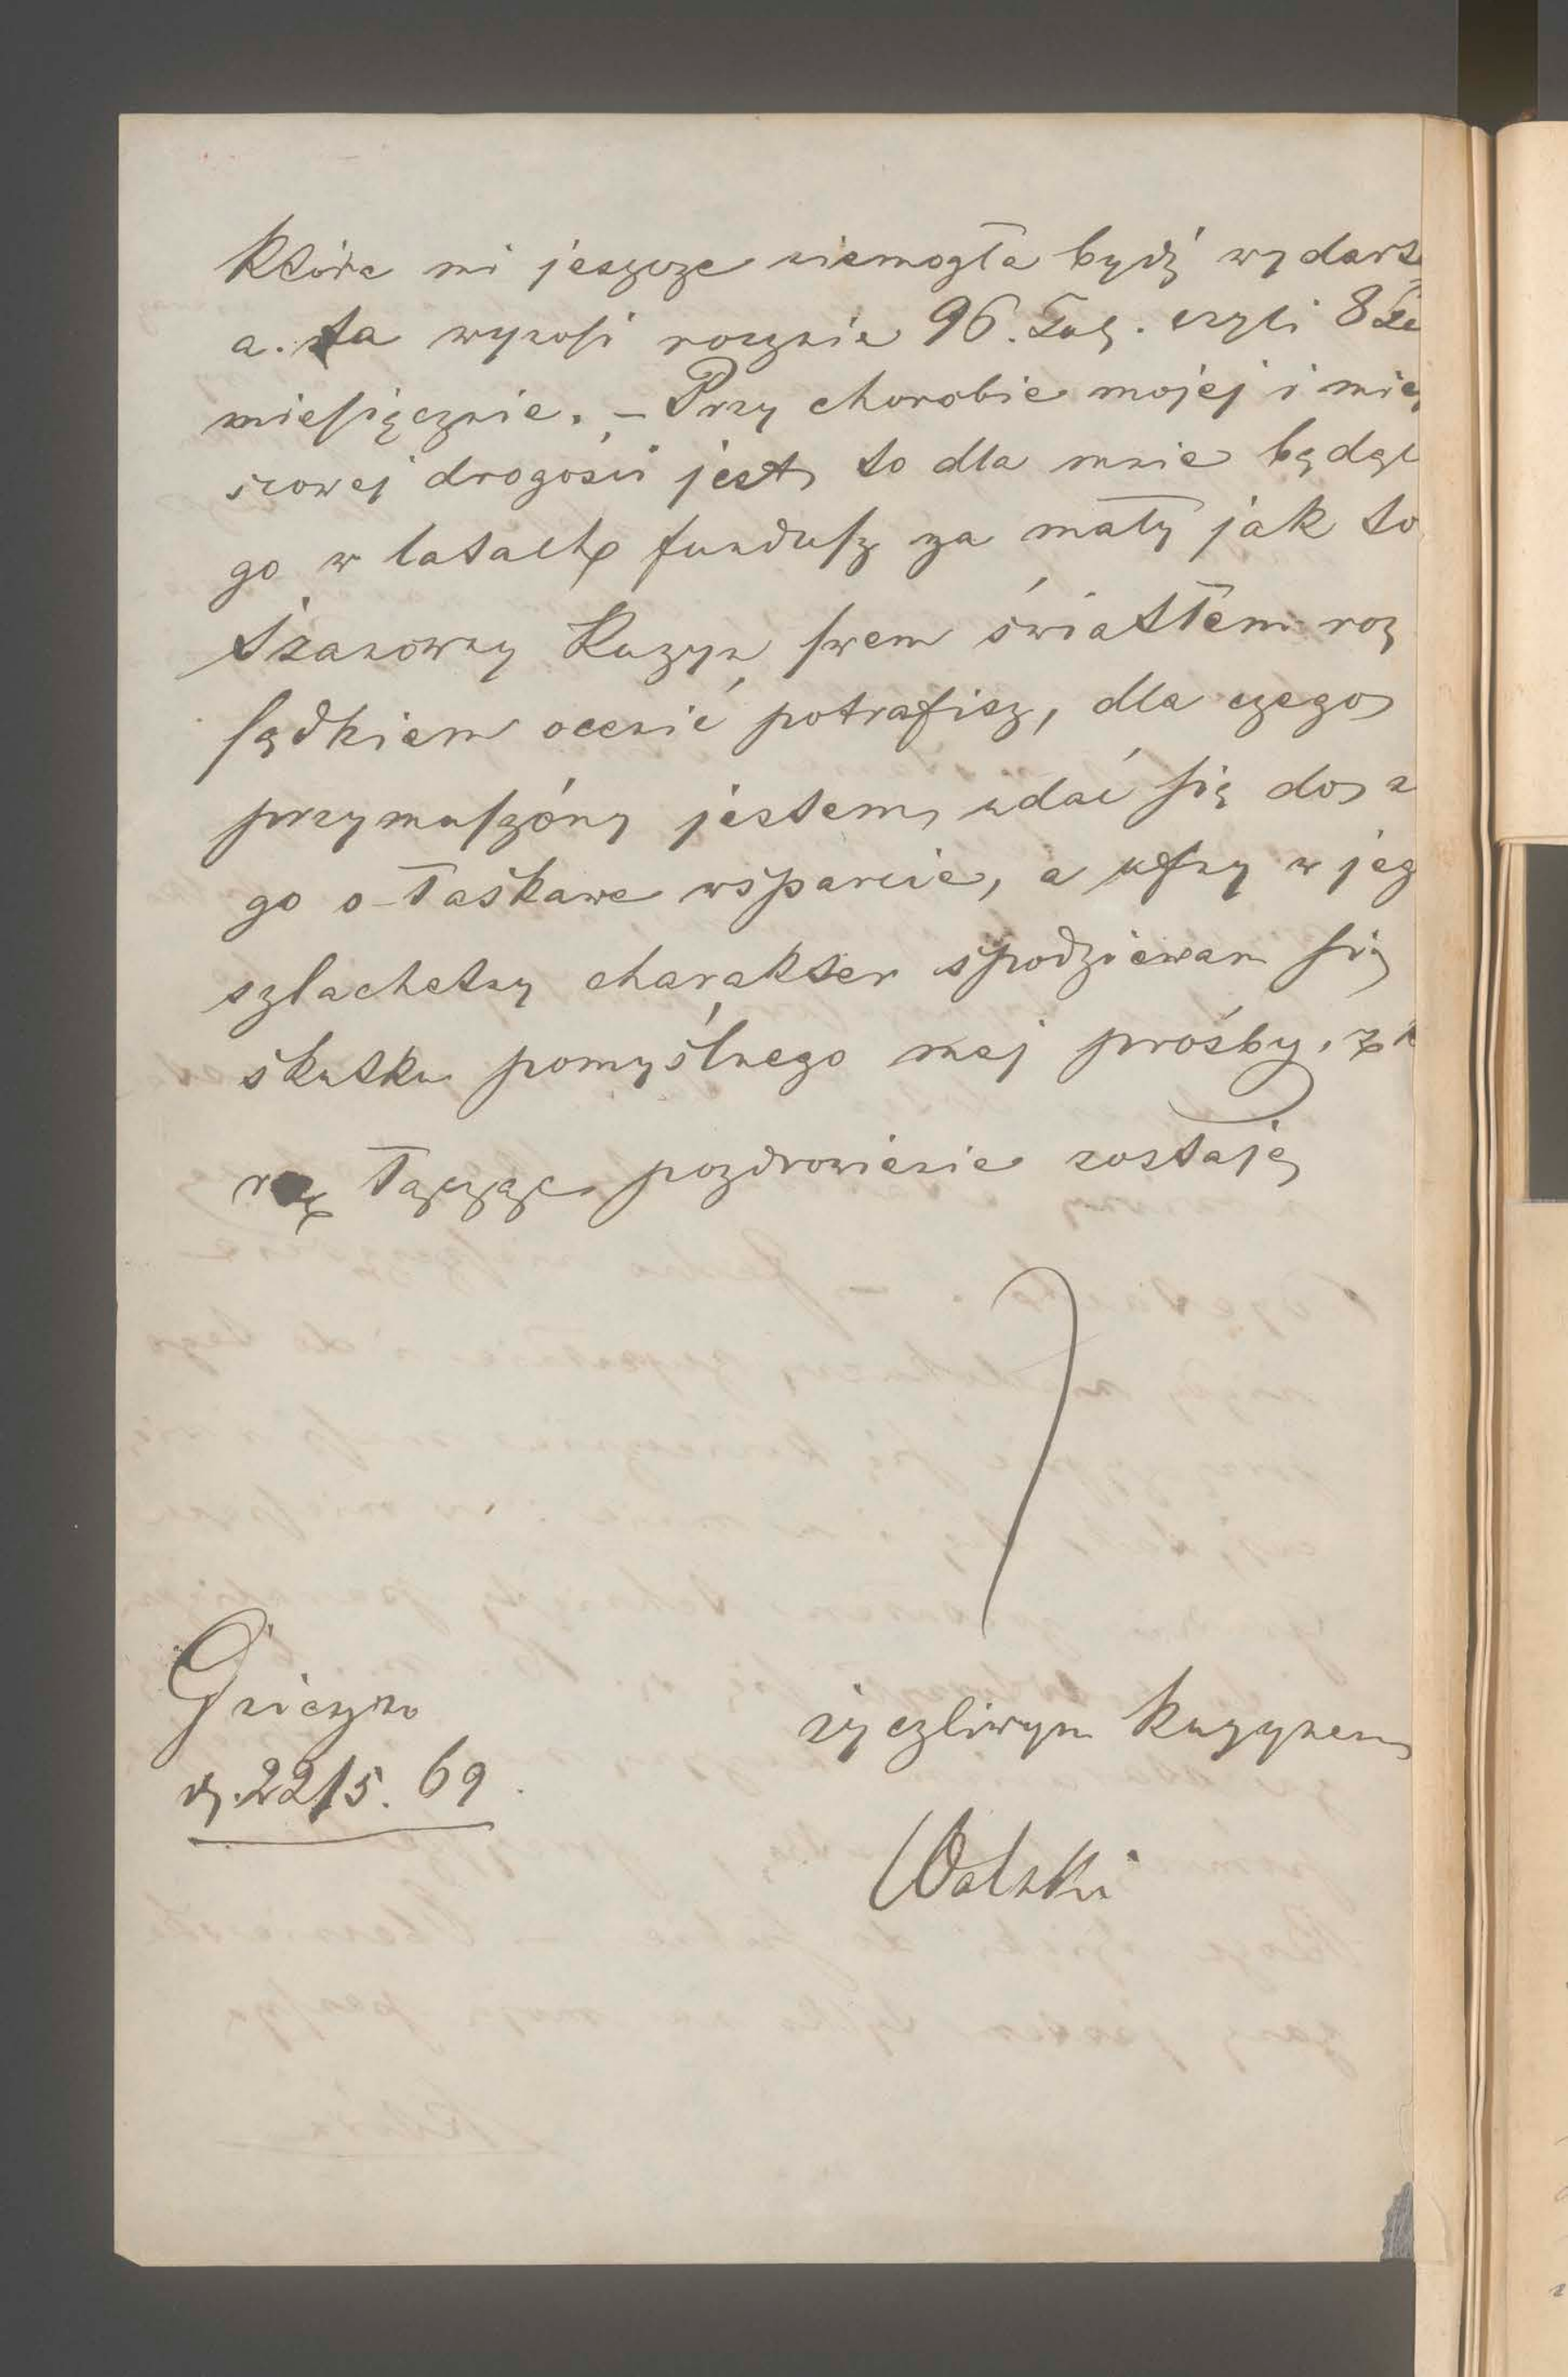 która mi jeszcze niemogła bydź wydart
a. ta wynosi rocznie 96. Tal. czyli 8 Ta
miesięcznie. – Przy chorobie mojej i miej
scowej drogości jest to dla mnie będąc
go w latach fundusz za mały jak to
Szanowny Kuzyn swem światłem roz
sądkiem ocenić potrafisz, dla czego
przymuszóny jestem udać się do
go o łaskawe wsparcie, a ufny w jeg
szlachetny charakter spodziewam się
skutku pomyślnego mej prośby,
raz łącząc pozdrowienie zostaję
życzliwym kuzynem
Wolski
Gniezno
d. 22/5. 69.